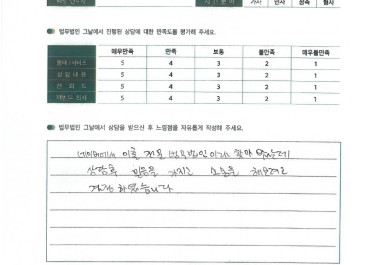 가사 민사 상속 형사
법무법인 그날에서 진행된 상담에 대한 만족도를 평가해 주세요.
매우만족 만족 보통 불만족 매우불만족
5 4 3 2 1
상담내용 5 4 3 2 1
신뢰도 5 4 3 2 1
5 4 3 2 1
법무법인 그날에서 상담을 받으신 후 느낌점을 자유롭게 작성해 주세요.
네이버에서 이혼 전문 법무법인이라 찾아 왔는데
상담후 믿음을 가지고 소송을 해보려고
결정 하였습니다